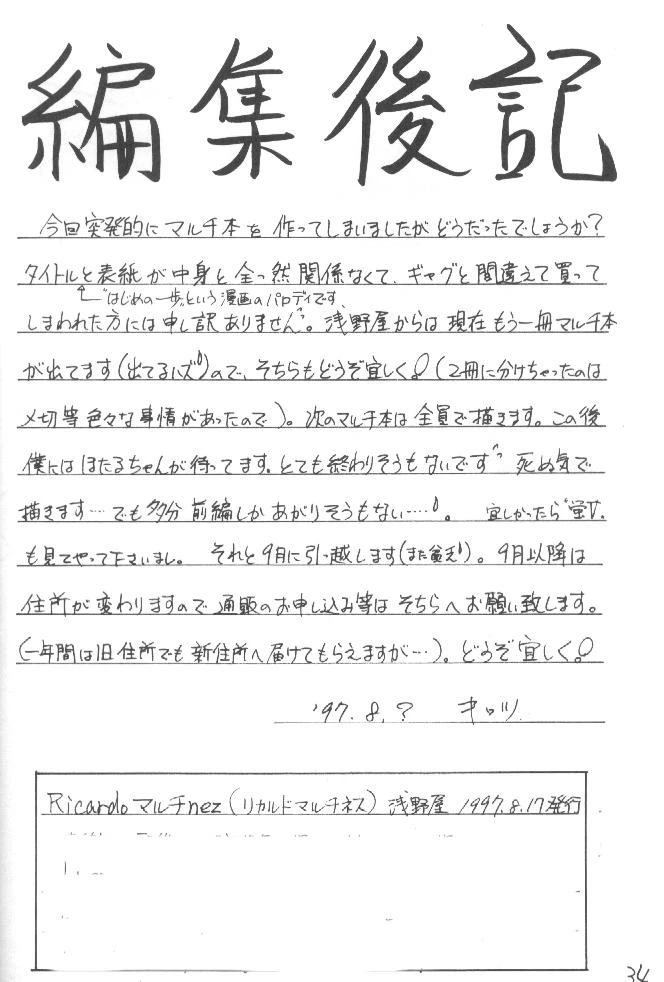 編集後記
今回突発的にマルチ本を作ってしまいましたがどうだったでしょうか?
タイトルと表紙が中身と全っ然関係なくて、ギャグと間違えて買って
"はじめの一歩"という漫画のパロディです、
しまわれた方には申し訳ありません。浅野屋からは現在もう一冊マルチ本
が出てます(出てるハズ)ので、そちらもどうぞ宜しく!(2冊に分けちゃったのは
〆切等色々な事情があったので)。次のマルチ本は全員で描きます。この後
僕にはほたるちゃんが待ってます。とても終わりそうもないです 死ぬ気で
描きます…でも多分前編しかあがりそうもない……。 宜しかったら"蛍Ⅴ"
も見てやって下さいまし。 それと9月に引っ越します(また貧乏)。9月以降は
住所が変わりますので通販のお申し込み等はそちらへお願い致します。
(一年間は旧住所でも新住所へ届けてもらえますが…)。どうぞ宜しく!
'97.8.? キロツ
Ricardoマルチnez(リカルドマルチネス) 浅野屋 1997.8.17発行
34